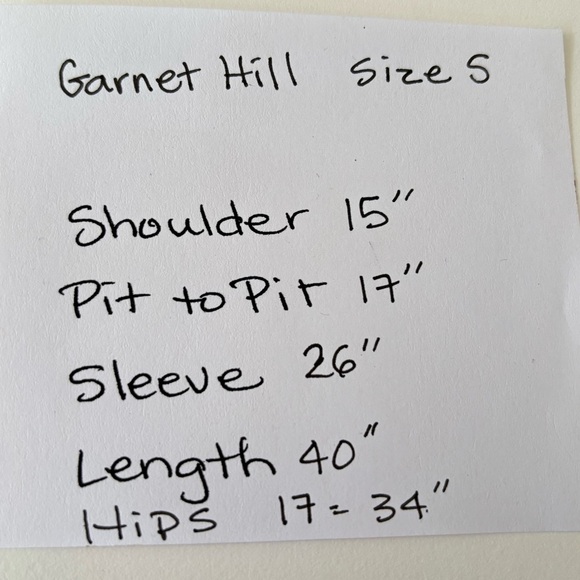 Garnet Hill Size S
Shoulder 15"
Pit to Pit 17"
Sleeve 26"
Length 40"
Hips 17 = 34"